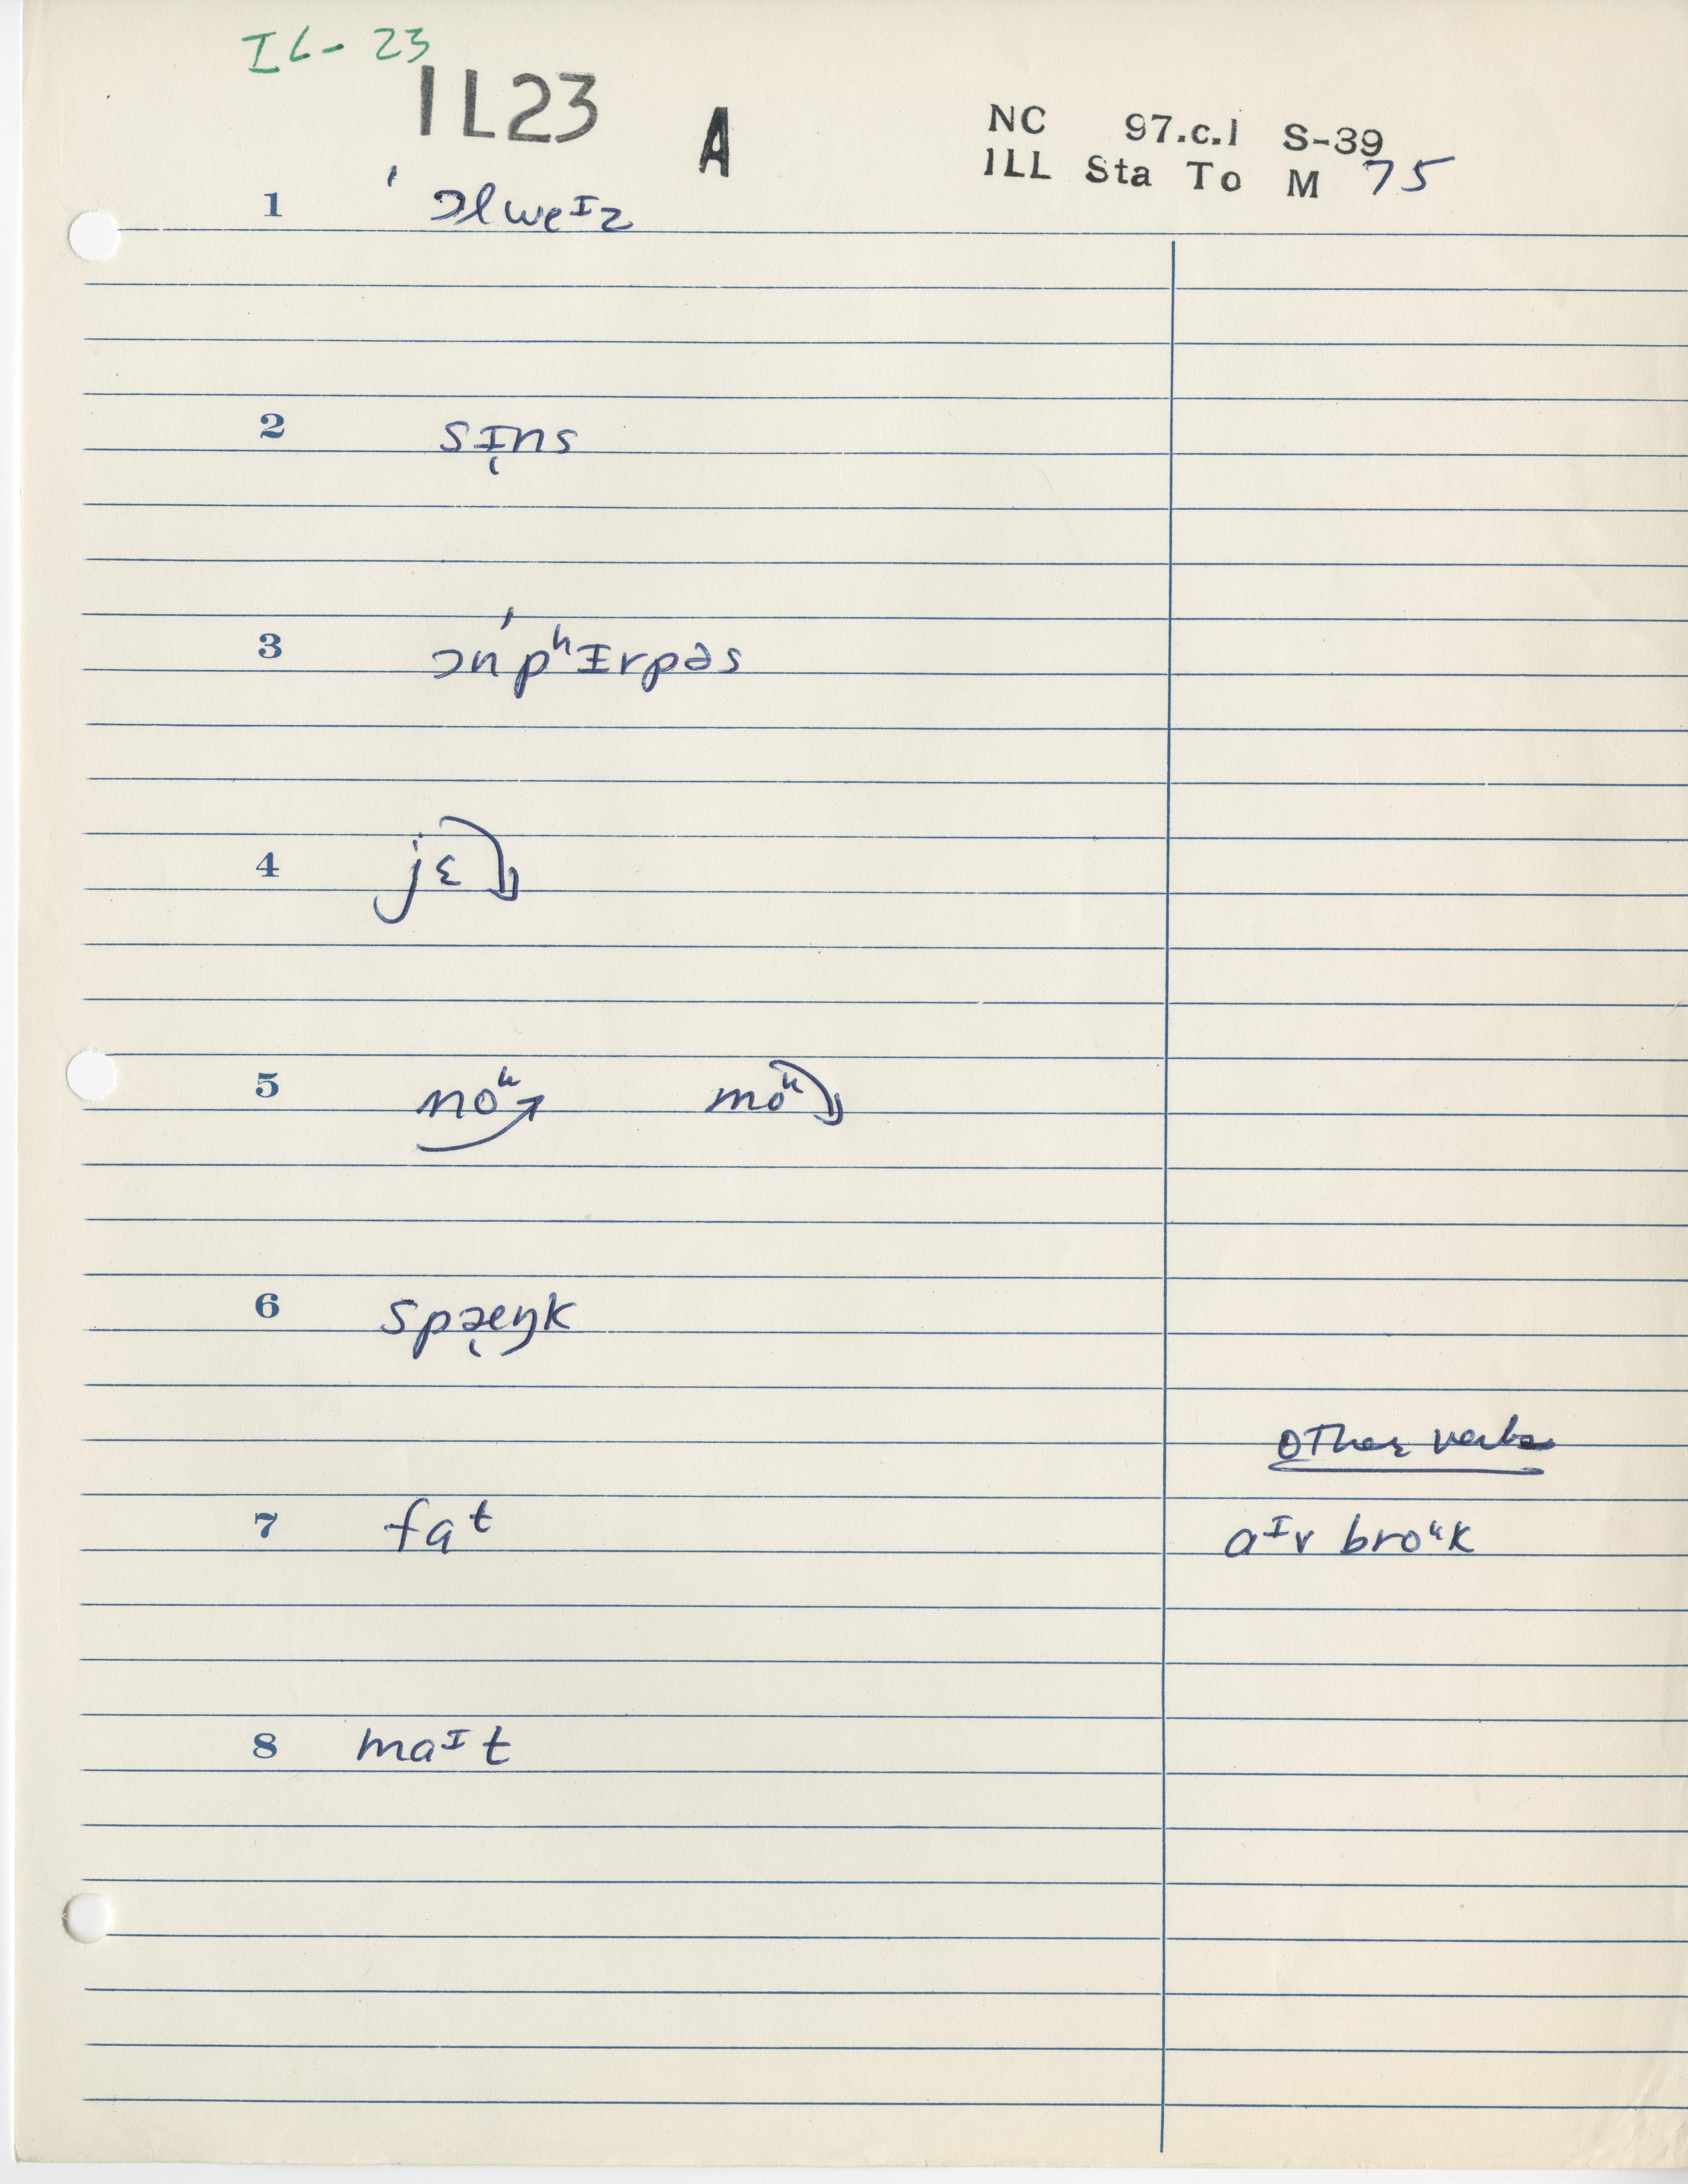 IL-23
IL23 A
NC 97.c.1 S-39
ILL Sta To M 75
1 ˈɔlweᴵz
2 sɪ̨ns
3 ɔnˈpʰɪrpəs
4 jɛ
5 noᵘ moᵘ
6 spæ̨ŋk
Other verbs
7 faᵗ aᴵv broᵘk
8 maᴵt